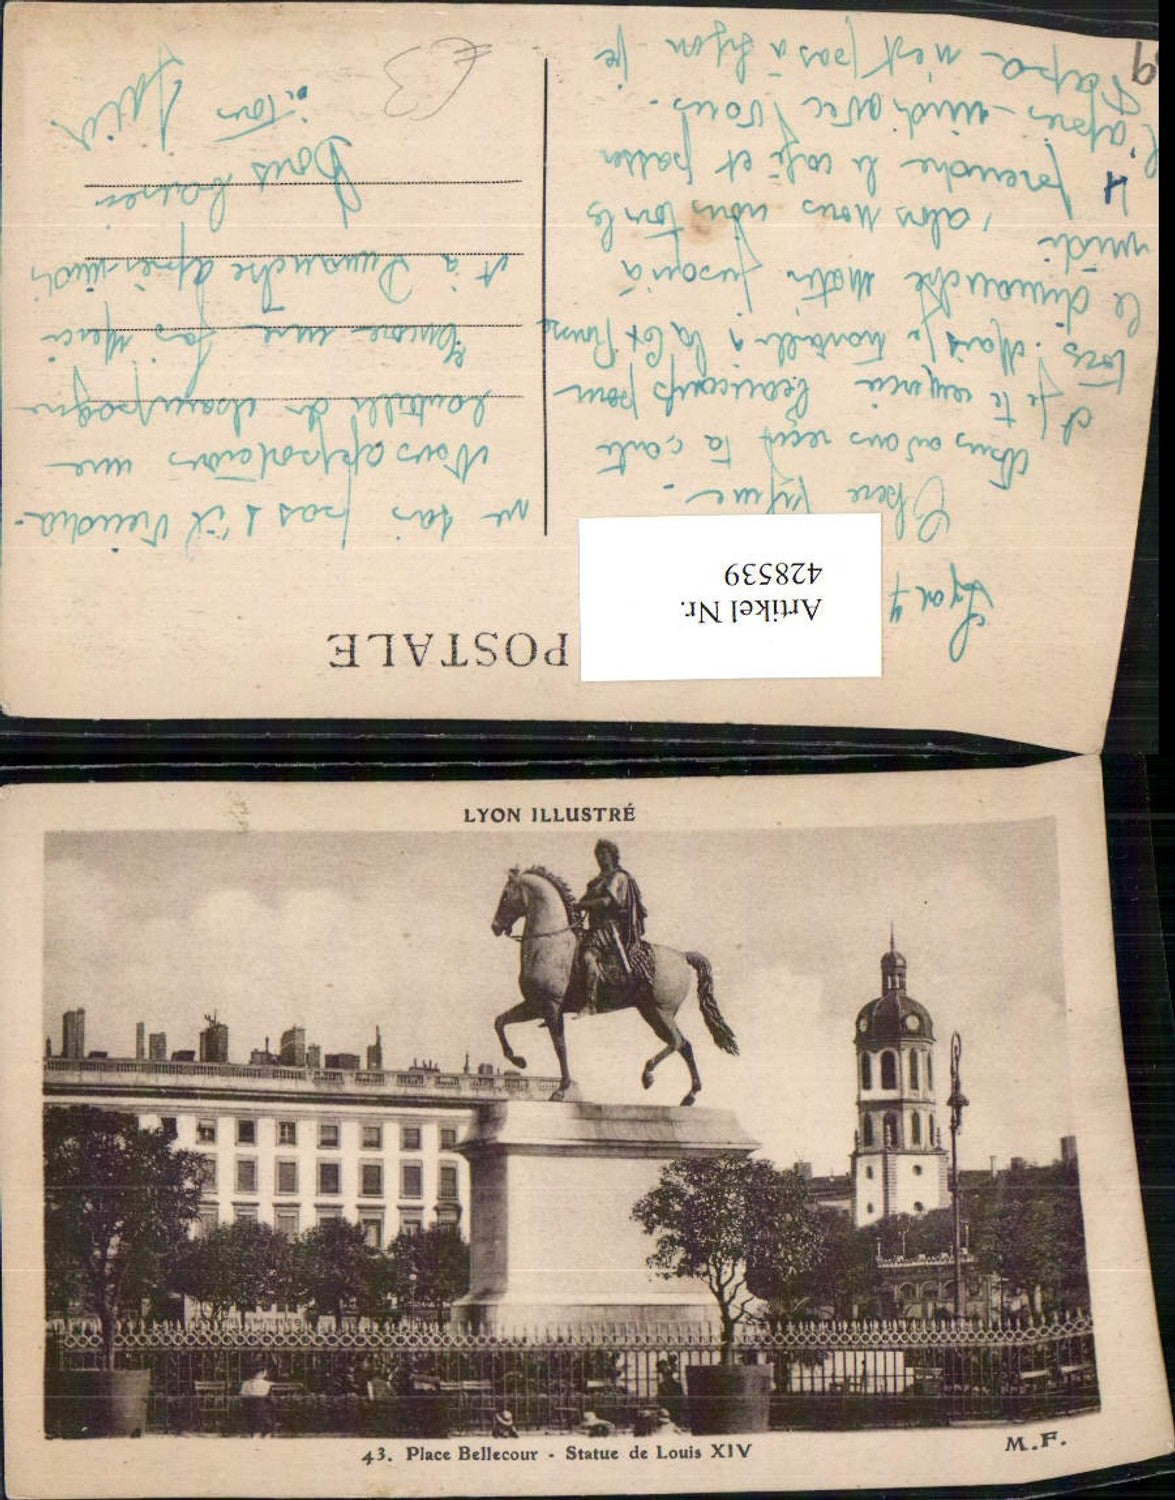 POSTALE
Artikel Nr.
428539
Lyon
Chère
Nous avons reçu ta carte
Je te remercie beaucoup pour
Mais je travaille
le dimanche matin jusqu'à
midi, alors nous
prendre le café et passer
l'après-midi avec vous.
Papa n'est pas à Lyon je
ne sais pas s'il viendra.
Nous apportons une
bouteille de champagne
Encore une fois Merci
et à Dimanche après-midi
Bons baisers
à tous
LYON ILLUSTRÉ
43. Place Bellecour - Statue de Louis XIV
M.F.